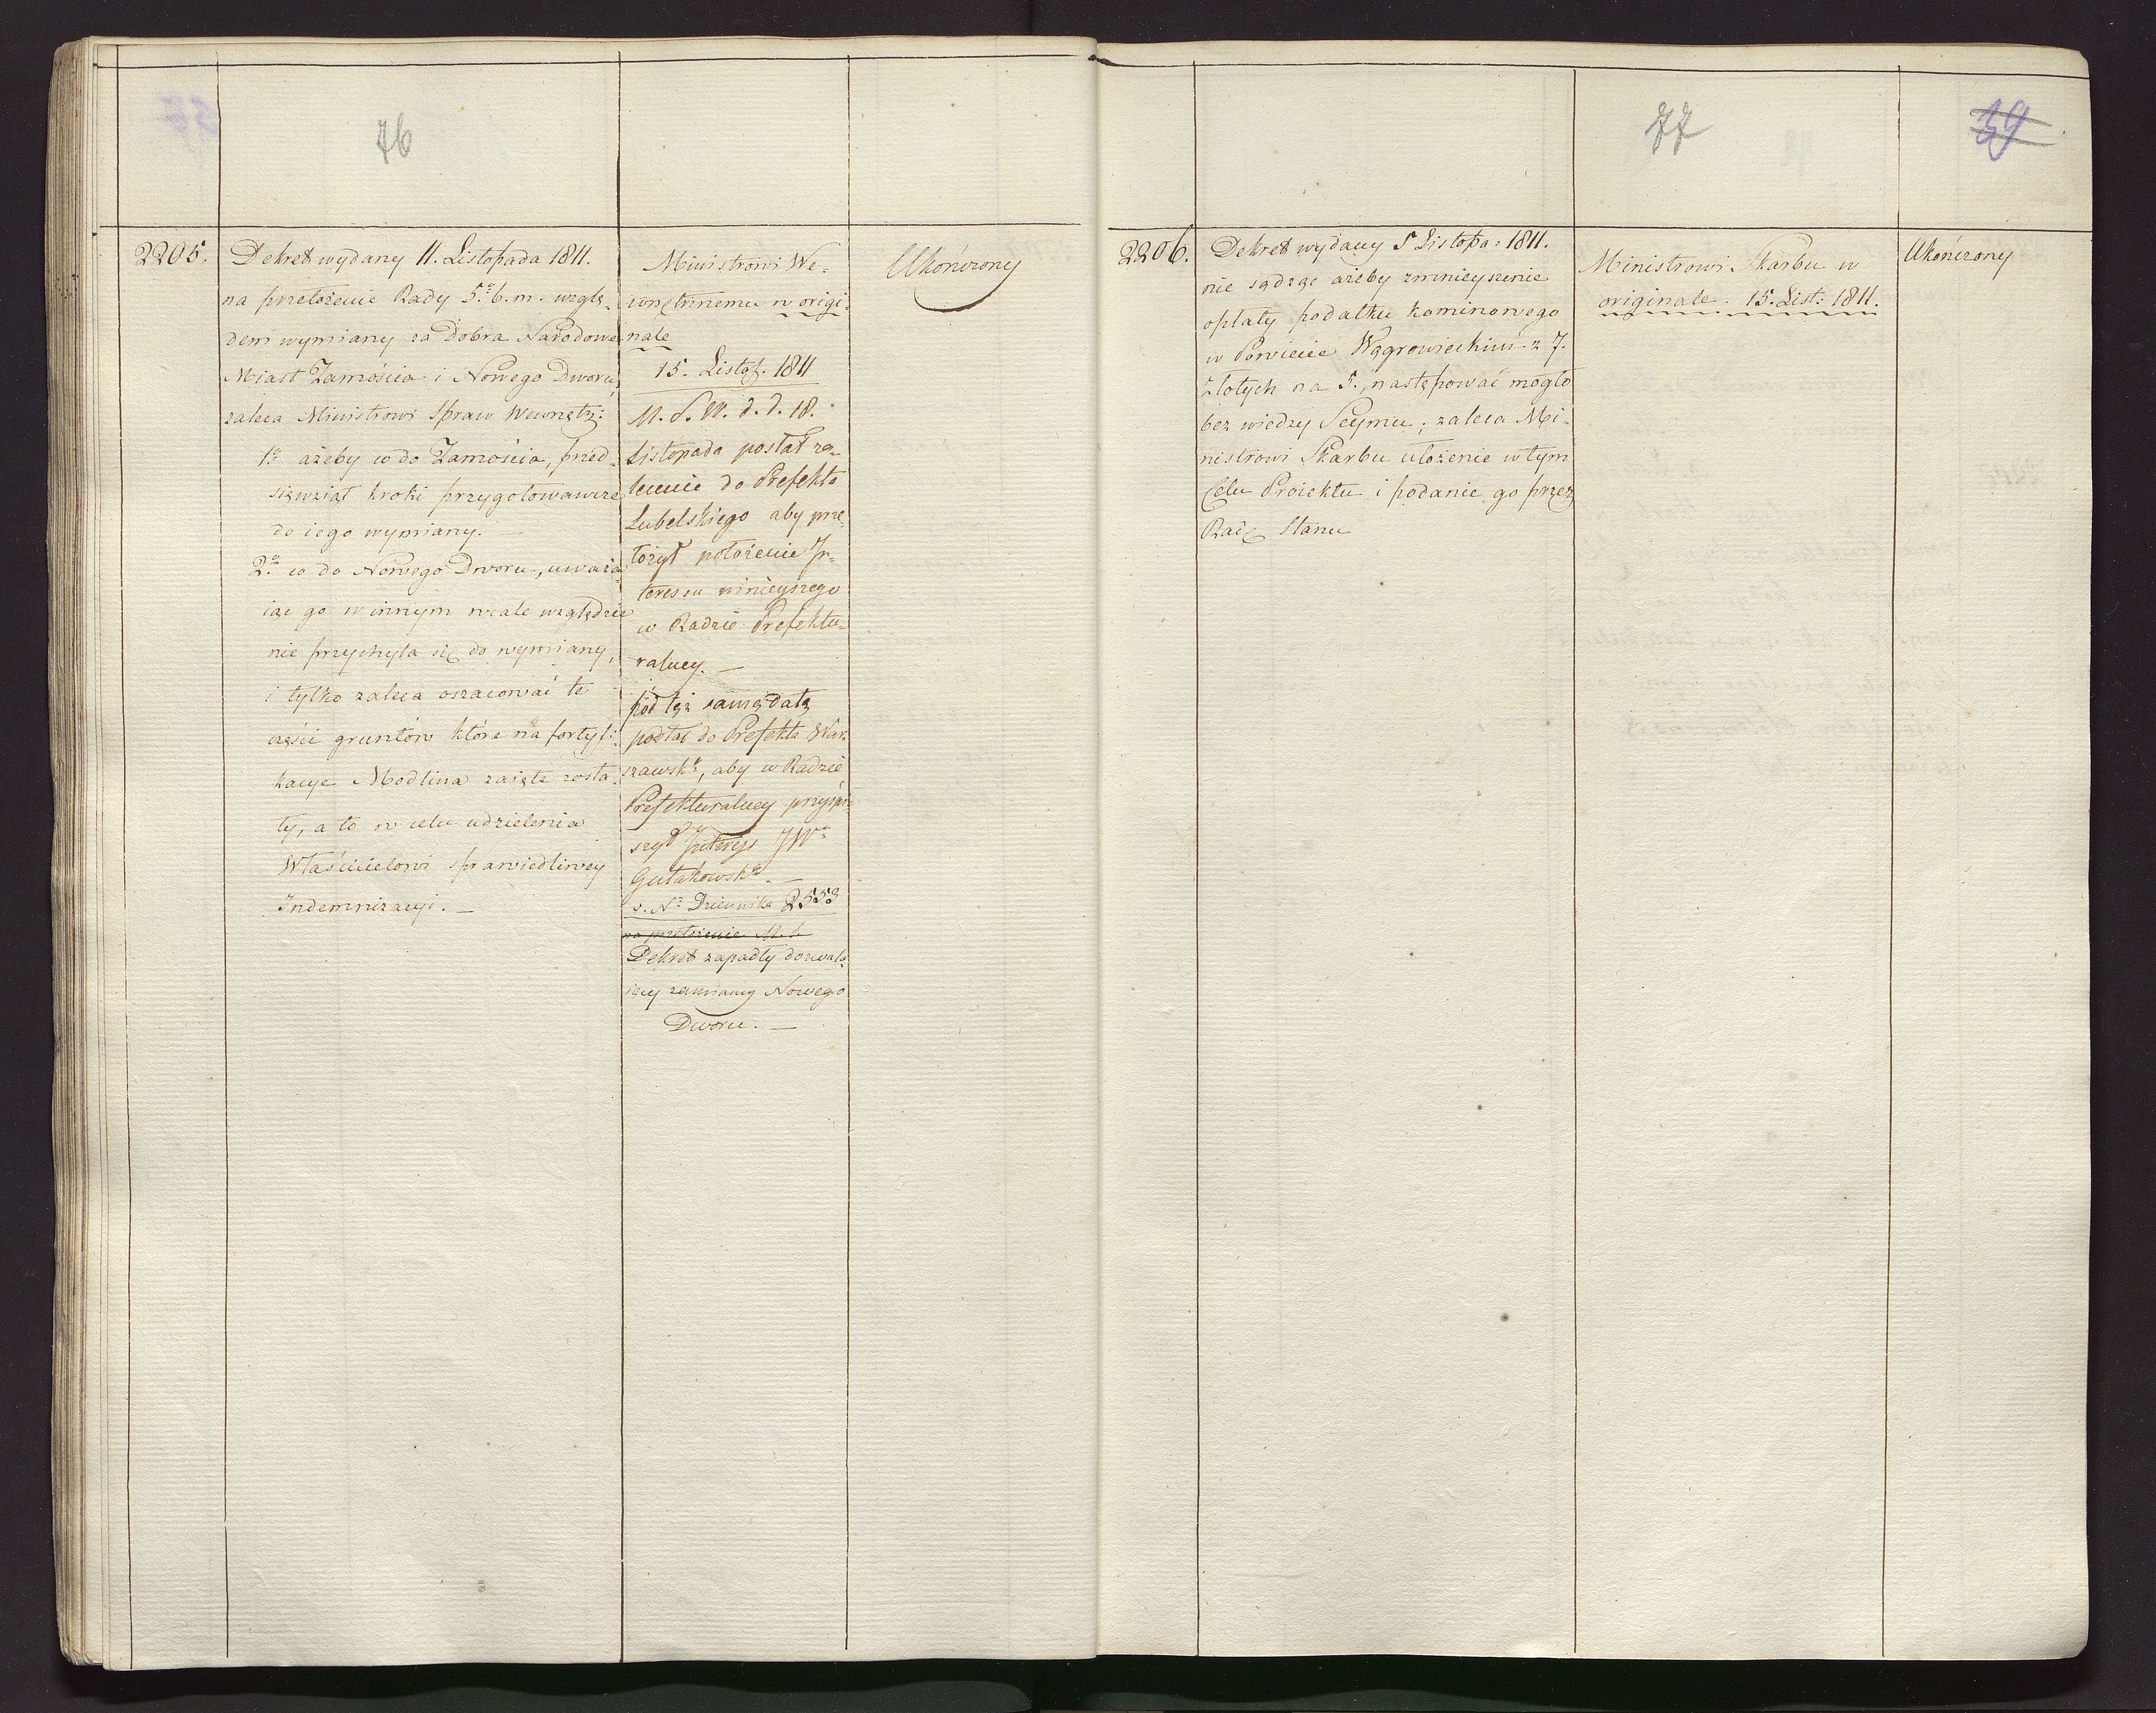 76
2205.
Dekret wydany 11. Listopada 1811.
na przełożenie Rady 5.º b. m. wzglę-
dem wymiany za Dobra Narodowe
Miast Zamościa i Nowego Dworu,
zaleca Ministrowi Spraw Wewnętrz:
1º ażeby co do Zamościa, przed-
sięwziął kroki przygotowawcze
do iego wymiany. —
2º co do Nowego Dworu, uważa-
iąc go w innym wcale względzie
nie przychyla się do wymiany,
i tylko zaleca oszacować te
części gruntów które na fortyfi-
kacye Modlina zaięte zosta-
ły, a to w celu udzielenia
Właścicielowi sprawiedliwey
Indemnizacyi. —
Ministrowi We-
wnętrznemu w origi-
nale
15. Listop. 1811
M. S. W. d. d. 18.
Listopada posłał za-
lecenie do Prefekta
Lubelskiego aby prze-
łożył położenie In-
teressu ninieyszego
w Radzie Prefektu-
ralney. —
pod tęż samą datą
posłał do Prefekta War-
szawskº, aby w Radzie
Prefekturalney przyśpie-
szył Interess JWº
Gutakowskº. —
v. Nº Dziennika 2553
na przełożenie M. S.
Dekret zapadły dozwala-
iący zamiany Nowego
Dworu. —
Ukończony
77
39
2206.
Dekret wydany 5 Listopa: 1811.
nie sądząc ażeby zmnieyszenie
opłaty podatku kominowego
w Powiecie Wągrowieckim z 7.
złotych na 5., następować mogło
bez wiedzy Seymu; zaleca Mi-
nistrowi Skarbu ułożenie w tym
Celu Proiektu i podanie go przez
Radę Stanu
Ministrowi Skarbu w
originale. 15. List: 1811.
Ukończony